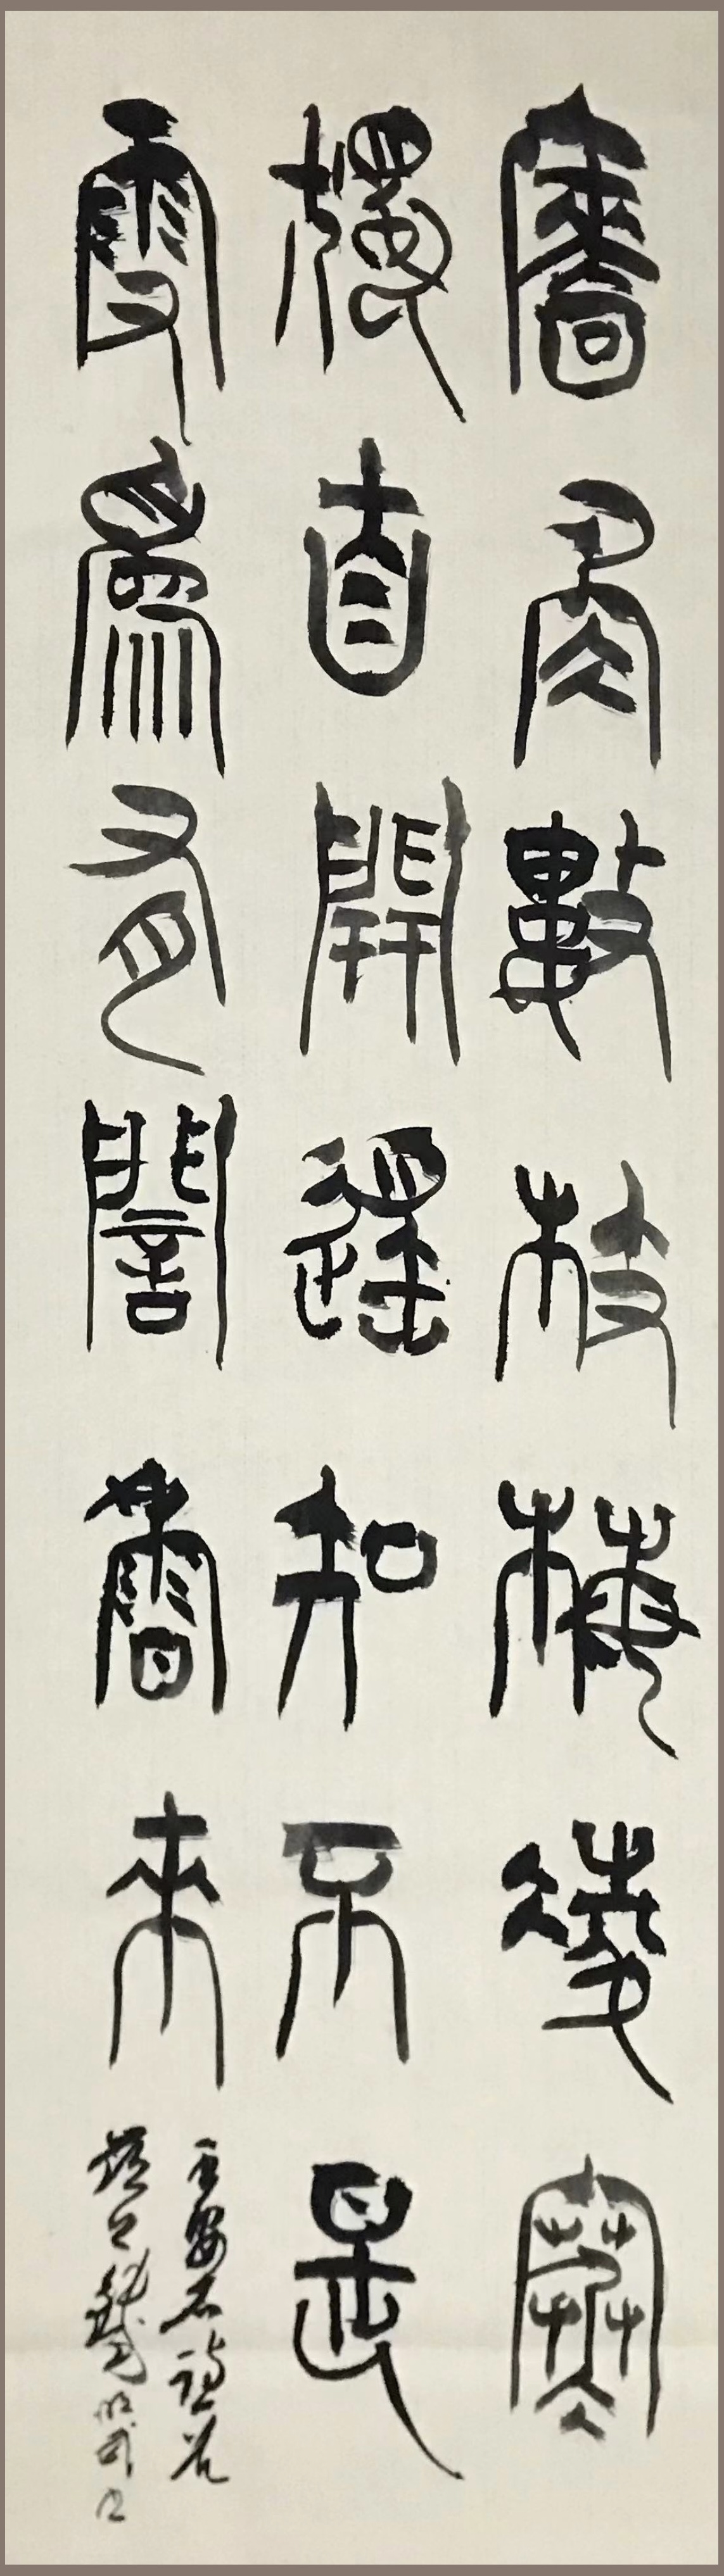 牆角數枝梅凌寒
獨自開遥知不是
雪為有闇香來
王安石詩首